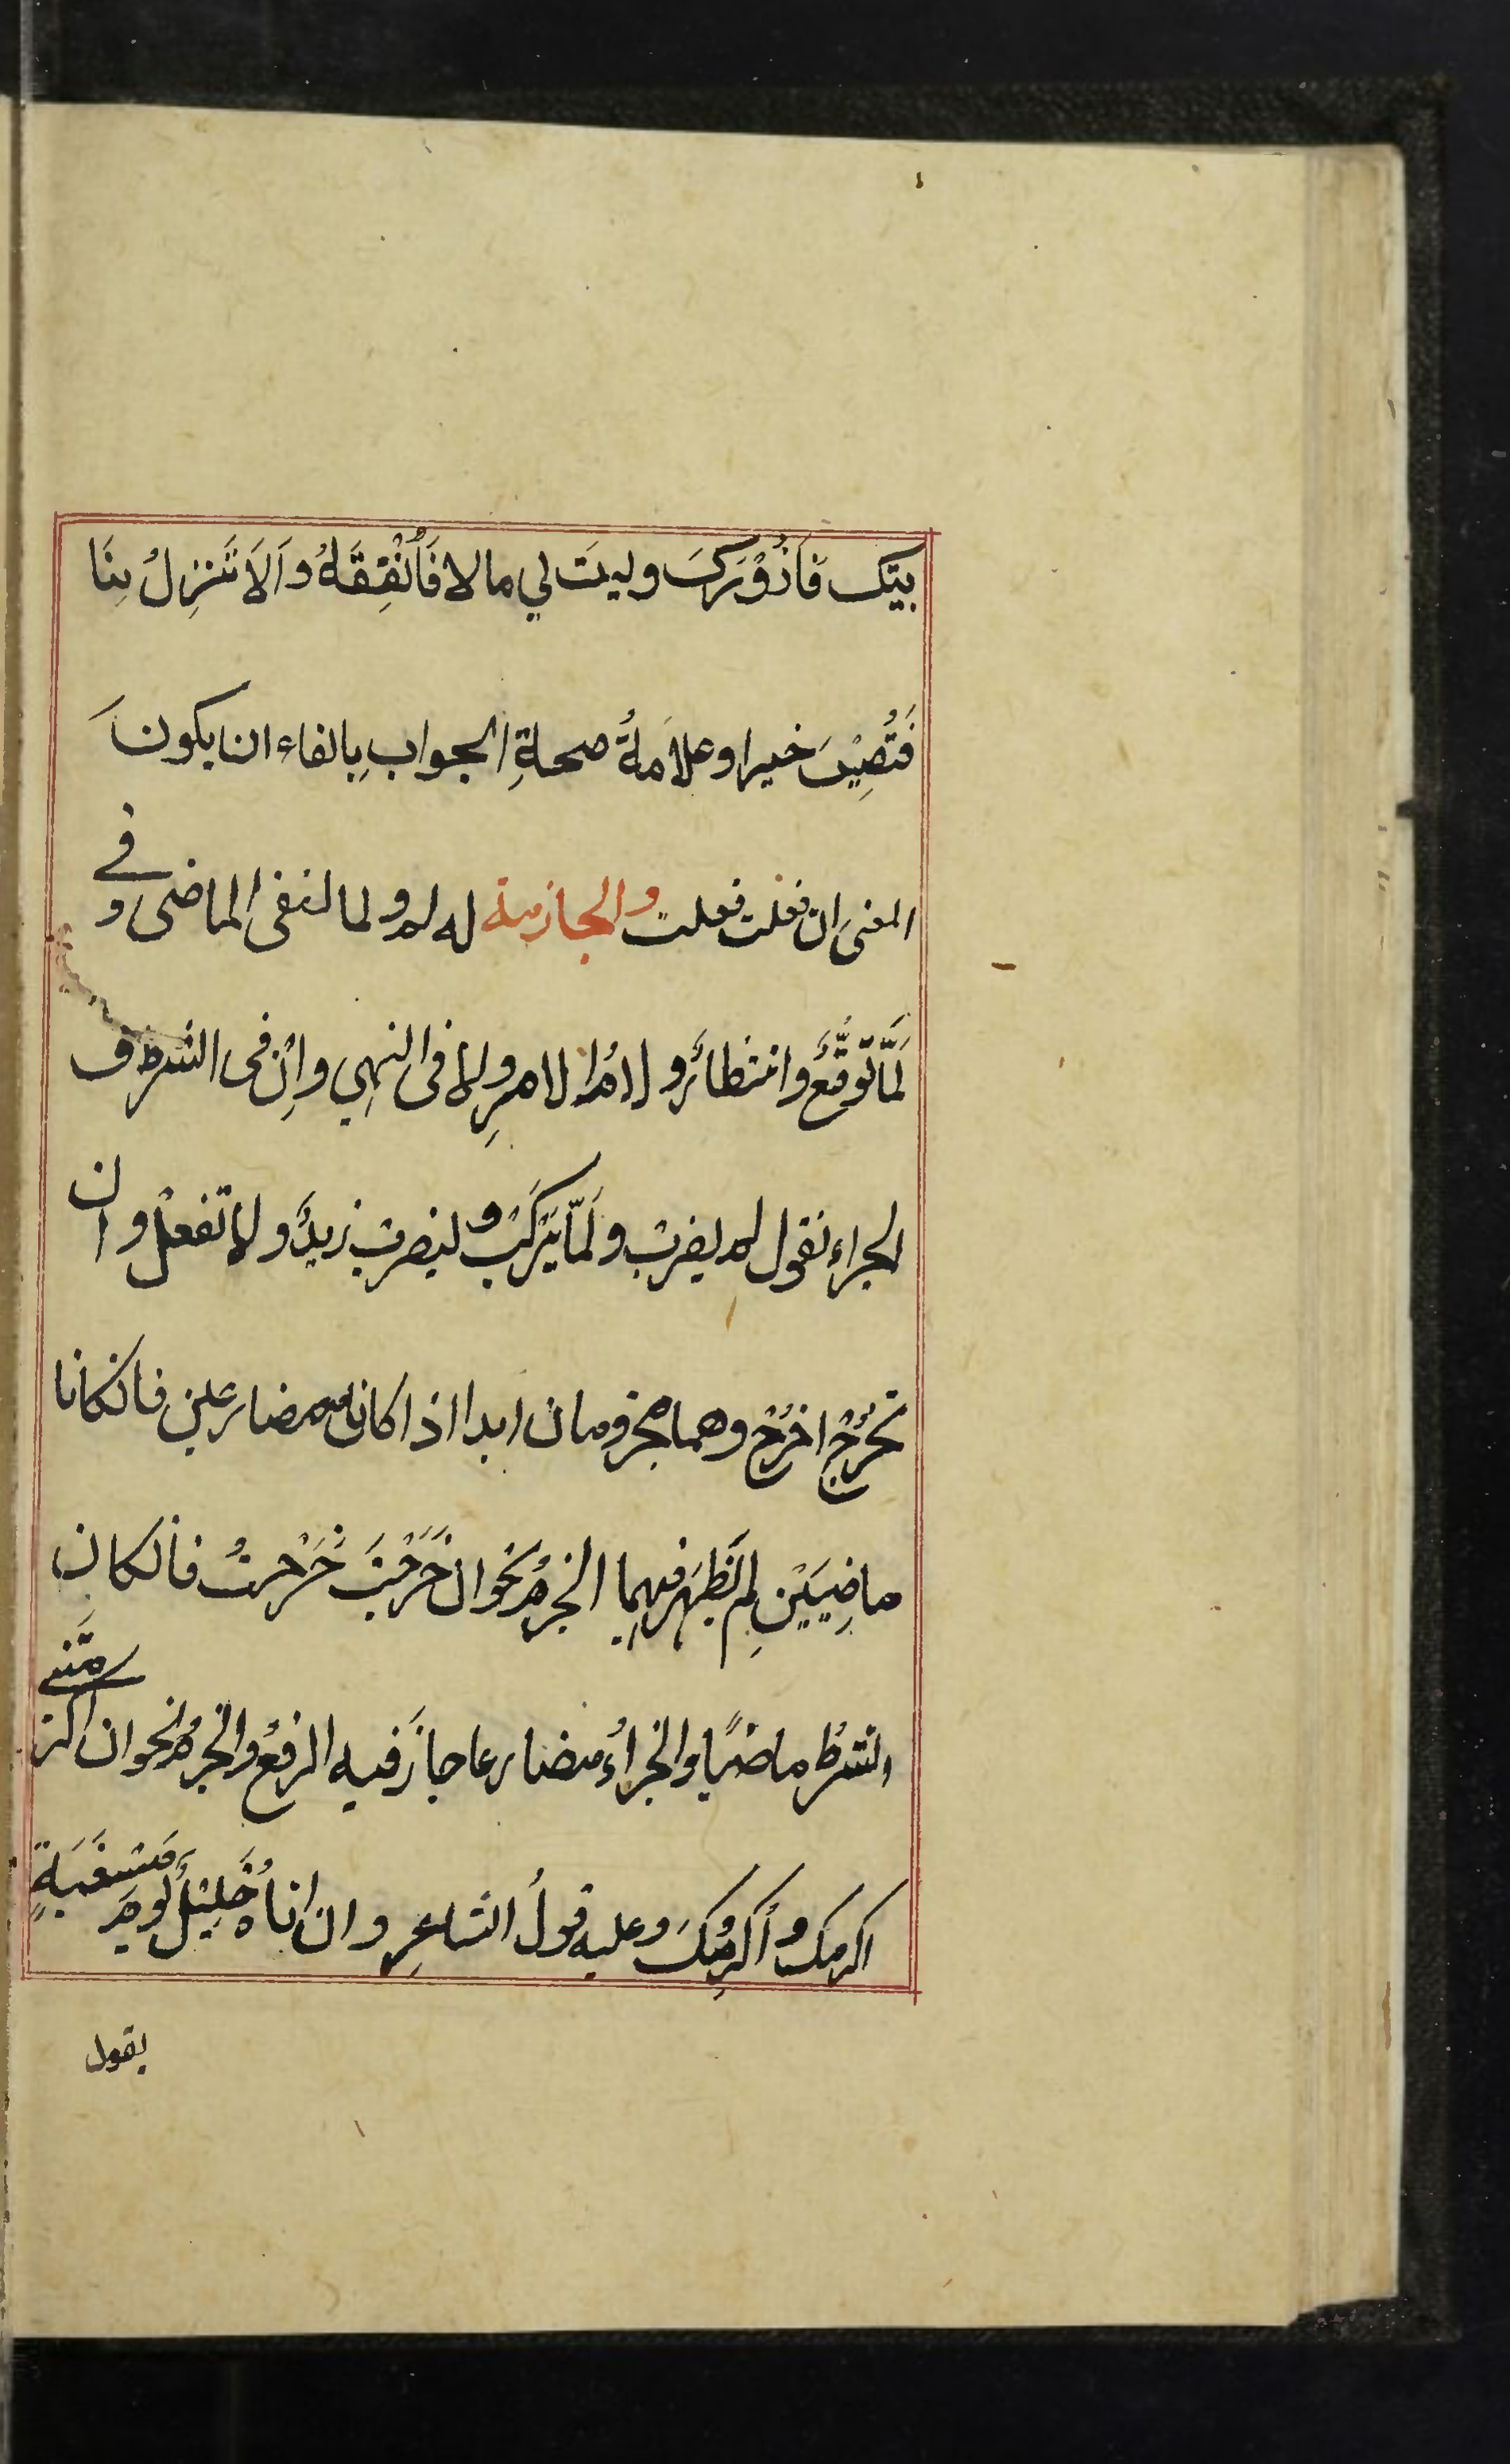 بيتك فَاَزُوْرَكَ وليتَ لي مالا فَاُنْفِقَهُ وَاَلاَ تَنْزِلُ بِنَا
فَتُصِيْبَ خيرا وعلاَمةُ صحةِ الجوابِ بالفاء ان يكونَ
المعنى ان فعلت فعلت والجازمة لم ولما لنفى الماضى و فى
لَمَّا تَوقُّعُ وانتظارُ ولامُ الامرِ ولا فى النهىِ واِنْ فى الشرط و
الجزاء نقول لم يضربْ ولَمَّا يَرْكَبْ وليضربْ زيدٌ ولا تفعلْ وان
تخرُجْ اخرُجْ وهما مجزومان ابدا اذا كانا مضارعين فانكانا
ماضِيَيْنِ لم يَظْهَر فيهما الجزمُ نحو ان خَرَجْتَ خَرَجْتُ فانكان
الشرطُ ماضيًا والجزاءُ مضارعا جازَ فيه الرفعُ والجزمُ نحو ان اكرمتنى
اكرمك واُكْرِمُكَ وعليه قولُ الشاعِرِ وان اتاهُ خَلِيْلٌ يومَ مَسْغَبَةٍ
يقول